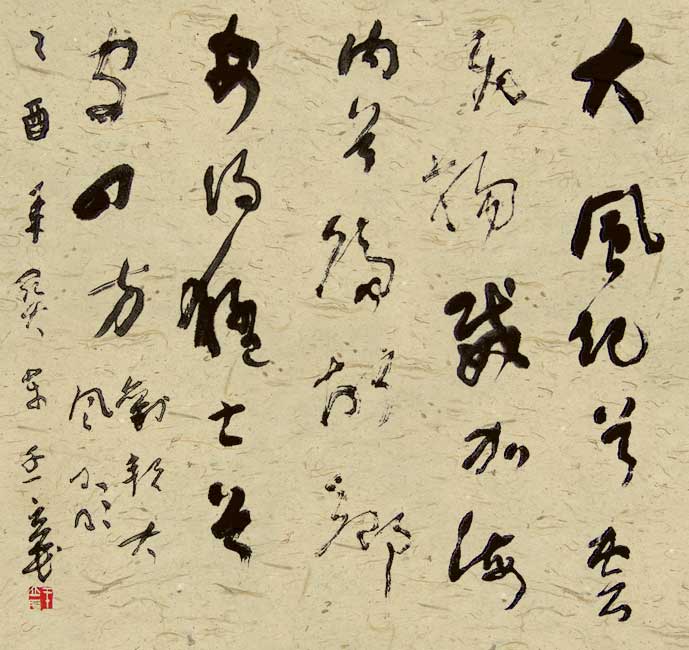 大風起兮雲
飛揚威加海
內兮歸故鄉
安得猛士兮
守四方
劉邦大
風歌
乙酉年